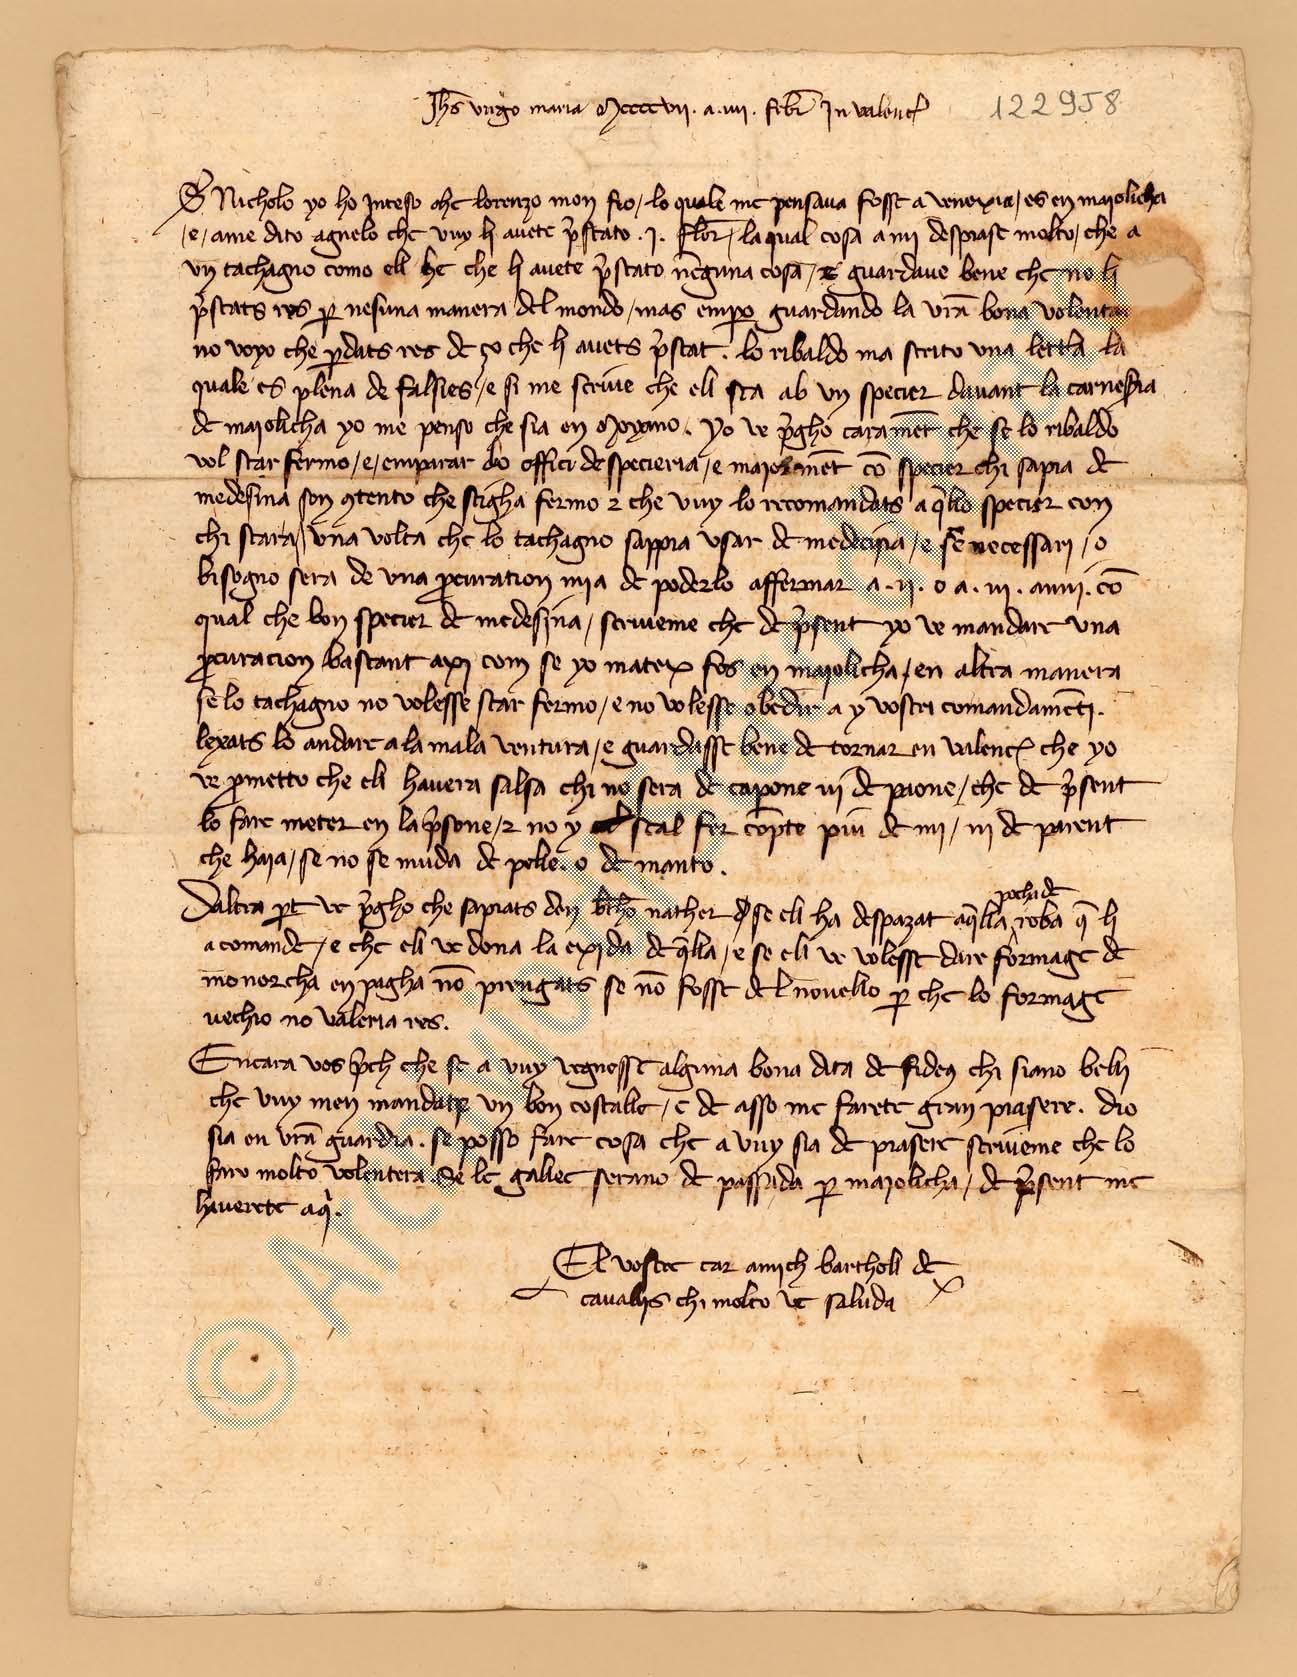 Jhs virgo maria Mccccvii. a. iiii. febr In valenc̃
122958
S̃ Nicholo yo ho Inteso che lorenzo mon fio / lo quale me pensaua fosse a venexia / es en maiolicha
/ e / ame dito agnelo che vuy li auete p̃stato .j. flor̃ / la qual cosa a mi desprase molto / che a
vn tachagno como ell he che li auete p̃stato nẽguna cosa / e guardaue bene che no li
p̃stats res p nesuna manera del mondo / mas empo guardando la vrã bona volenta
no voyo che pdats res de ço che li auets p̃stat. lo ribaldo ma scrito una lettra la
quale es plena de falsies / e si me scriue che ell sta ab vn specier dauant la carneseria
de maiolicha yo me penso che sia en Moyano. Yo ve p̃gho caramẽt che se lo ribaldo
vol star fermo / e / emparar lo offici de specieria / e maiormẽt cõ specier chi sapia de
medesina son 9tento che stigha fermo 2 che vuy lo recomandats a q̃llo specier con
chi stara / vna volta che lo tachagno sappia vsar de medecina / e se necessari / o
bisogno sera de vna pcuration mia de poderlo affermar a .ii. o a .iii. anni. cõ
qual che bon specier de medesina / scriueme che de p̃sent yo ve mandare vna
pcuracion bastant axi com se yo mateix fos en maiolicha / en altra manera
se lo tachagno no volesse star fermo / e no volesse obedir a y vostri comandamẽti.
lexats lo andare a la mala ventura / e guardasse bene de tornar en valenc̃ che yo
ve pmetto che ell hauera salsa chi no sera de capone ni de paone / che de p̃sent
lo fare meter en la p̃sone / 2 no y cal fer cõpte piu de mi / ni de parent
che haia / se no se muda de pelle. o de manto.
Daltra pt ve p̃gho che sapiats den btho nather se ell ha despazat aq̃lla pocha de roba q̃ li
acomande / e che ell ve dona la exida de q̃lla / e se ell ve volesse dare formage de
menorcha en pagha nõ prengats se nõ fosse del nouello p che lo formage
vechio no valeria res.
Encara vos p̃ch che se a vuy vegnesse alguna bona dita de fideus chi siano belli
che vuy men mandats vn bon costalle / e de asso me farete gran piasere. dio
sia en vrã guardia. se posso fare cosa che a vuy sia de piasere scriueme che lo
faro molto volentera. Se le galee serano de passada p maiolicha / de p̃sent me
hauerete aq̃.
El vostre car amich bartholi de
cauallis chi molto ve saluda
© Archivio